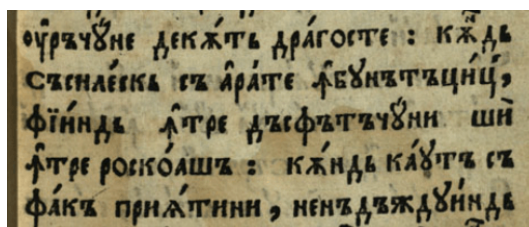 ѹ҆ръчю́не декѫ́ть дра́госте : кѫ́дь
съсиле́скь съ а҆ра́те ꙟ҆бꙋнътъци́ци́,
фїи́ндь ꙟ҆тре дъсфътъчю́ни шѝ
ꙟ҆тре роско́ашъ : кѫ́ндь ка́ꙋтъ съ
фа́къ прїѧ́тини, ненъдъждꙋи́ндь